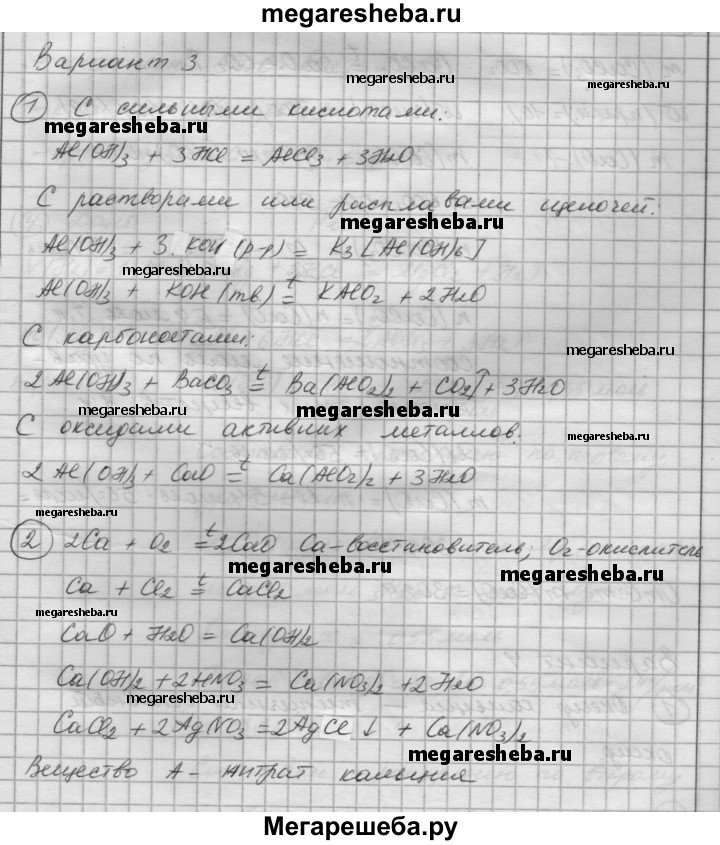 megaresheba.ru
Вариант 3
megaresheba.ru
megaresheba.ru
1 С сильными кислотами:
megaresheba.ru
megaresheba.ru
Al(OH)3 + 3HCl = AlCl3 + 3H2O
С растворами или расплавами щелочей:
megaresheba.ru
Al(OH)3 + 3 KOH (р-р) = K3[Al(OH)6]
megaresheba.ru
Al(OH)3 + KOH (тв.) t= KAlO2 + 2H2O
С карбонатами:
megaresheba.ru
2Al(OH)3 + BaCO3 t= Ba(AlO2)2 + CO2↑ + 3H2O
megaresheba.ru
megaresheba.ru
С оксидами активных металлов:
megaresheba.ru
2Al(OH)3 + CaO t= Ca(AlO2)2 + 3H2O
megaresheba.ru
2 2Ca + O2 t= 2CaO Ca-восстановитель; O2-окислитель
megaresheba.ru
megaresheba.ru
Ca + Cl2 t= CaCl2
megaresheba.ru
CaO + H2O = Ca(OH)2
Ca(OH)2 + 2HNO3 = Ca(NO3)2 + 2H2O
megaresheba.ru
CaCl2 + 2AgNO3 = 2AgCl ↓ + Ca(NO3)2
megaresheba.ru
Вещество А - нитрат кальция
Мегарешеба.ру